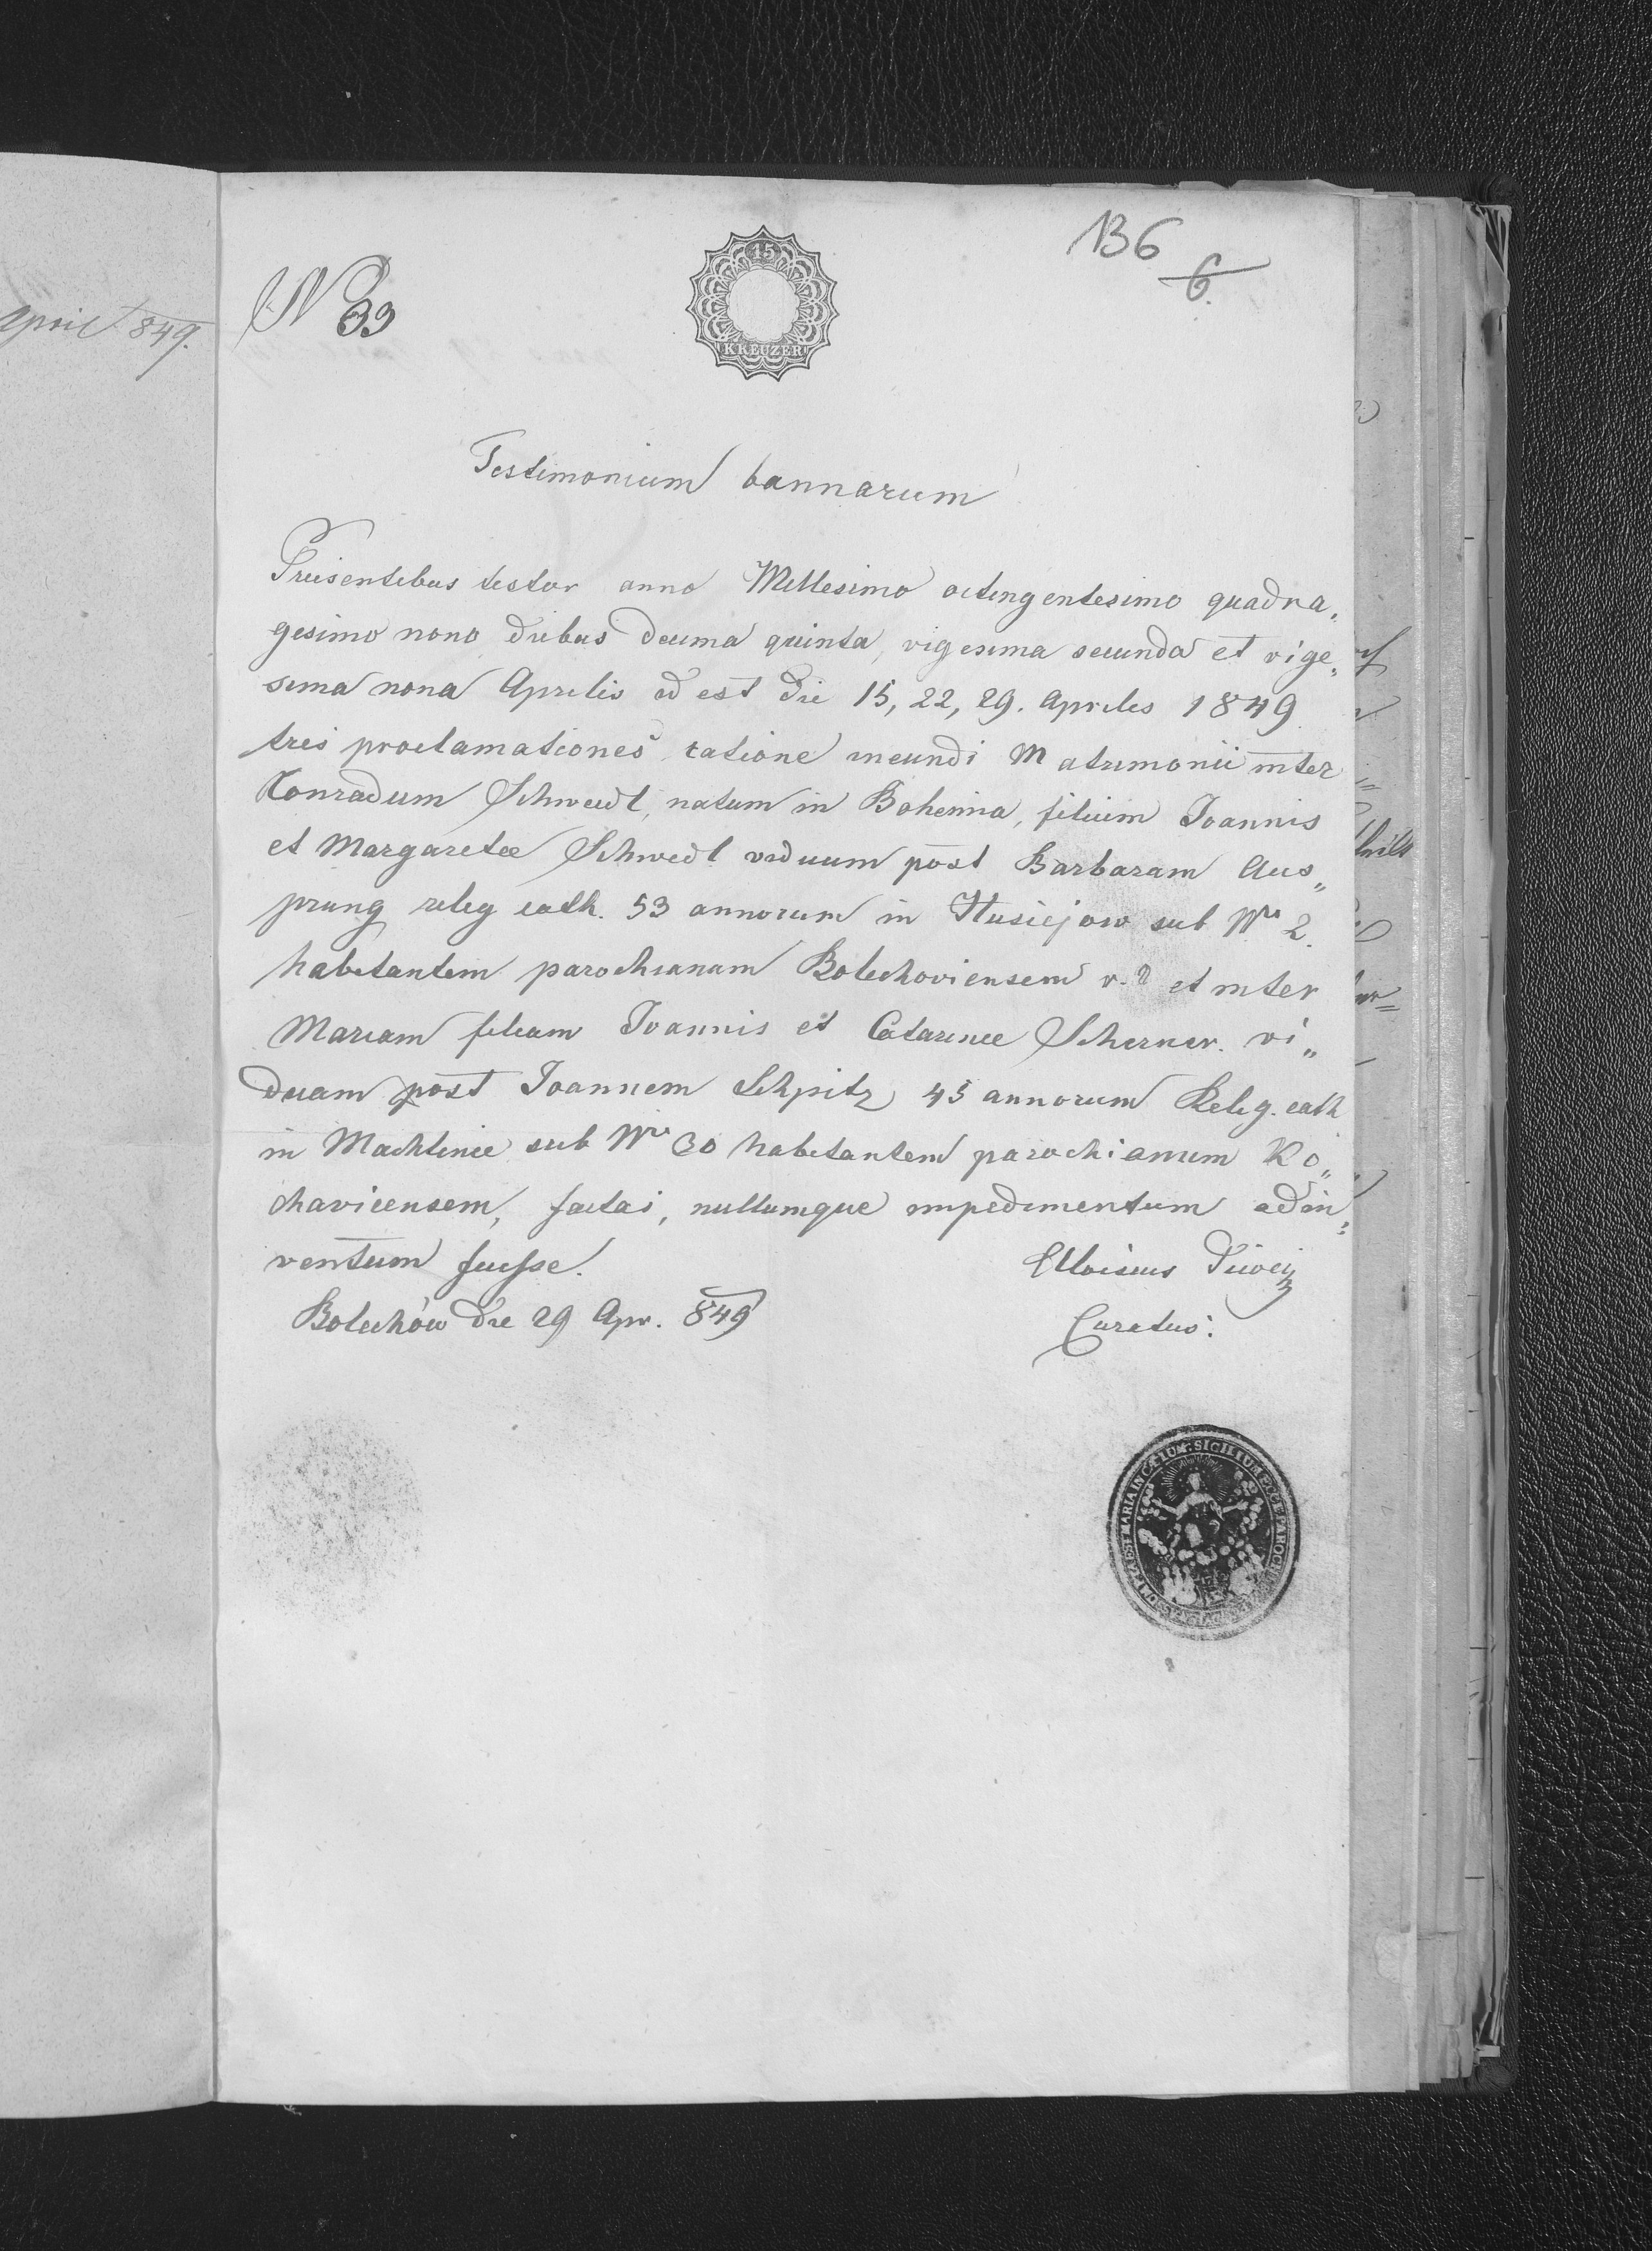 April 849.
136
6.
N 39
15
KREUZER
Testimonium bannarum
Præsentibus testor anno Millesimo octingentesimo quadra„
gesimo nono diebus decima quinta, vigesima secunda et vige„
sima nona Aprilis id est die 15, 22, 29. Aprilis 1849
tres proclamationes ratione ineundi Matrimonii inter
Conradum Schwedl, natum in Bohemia, filium Joannis
et Margaretæ Schwedl viduum post Barbaram Aus„
prung relig cath. 53 annorum in Husiejow sub Nro 2.
habitantem parochianum Bolechoviensem r. l et inter
Mariam filiam Joannis et Catarinæ Scherner. vi„
duam post Joannem Schpitz 45 annorum Relig. cath
in Machlinie sub Nro 30 habitantem parochianum Ko„
chavicensem, factas, nullumque impedimentum adin„
ventum fuisse.
Aloisius
Bolechów die 29 Apr. 849
Curatus.
MARIA IN CÆLUM. SIGILLUM ECCL. PAROCH